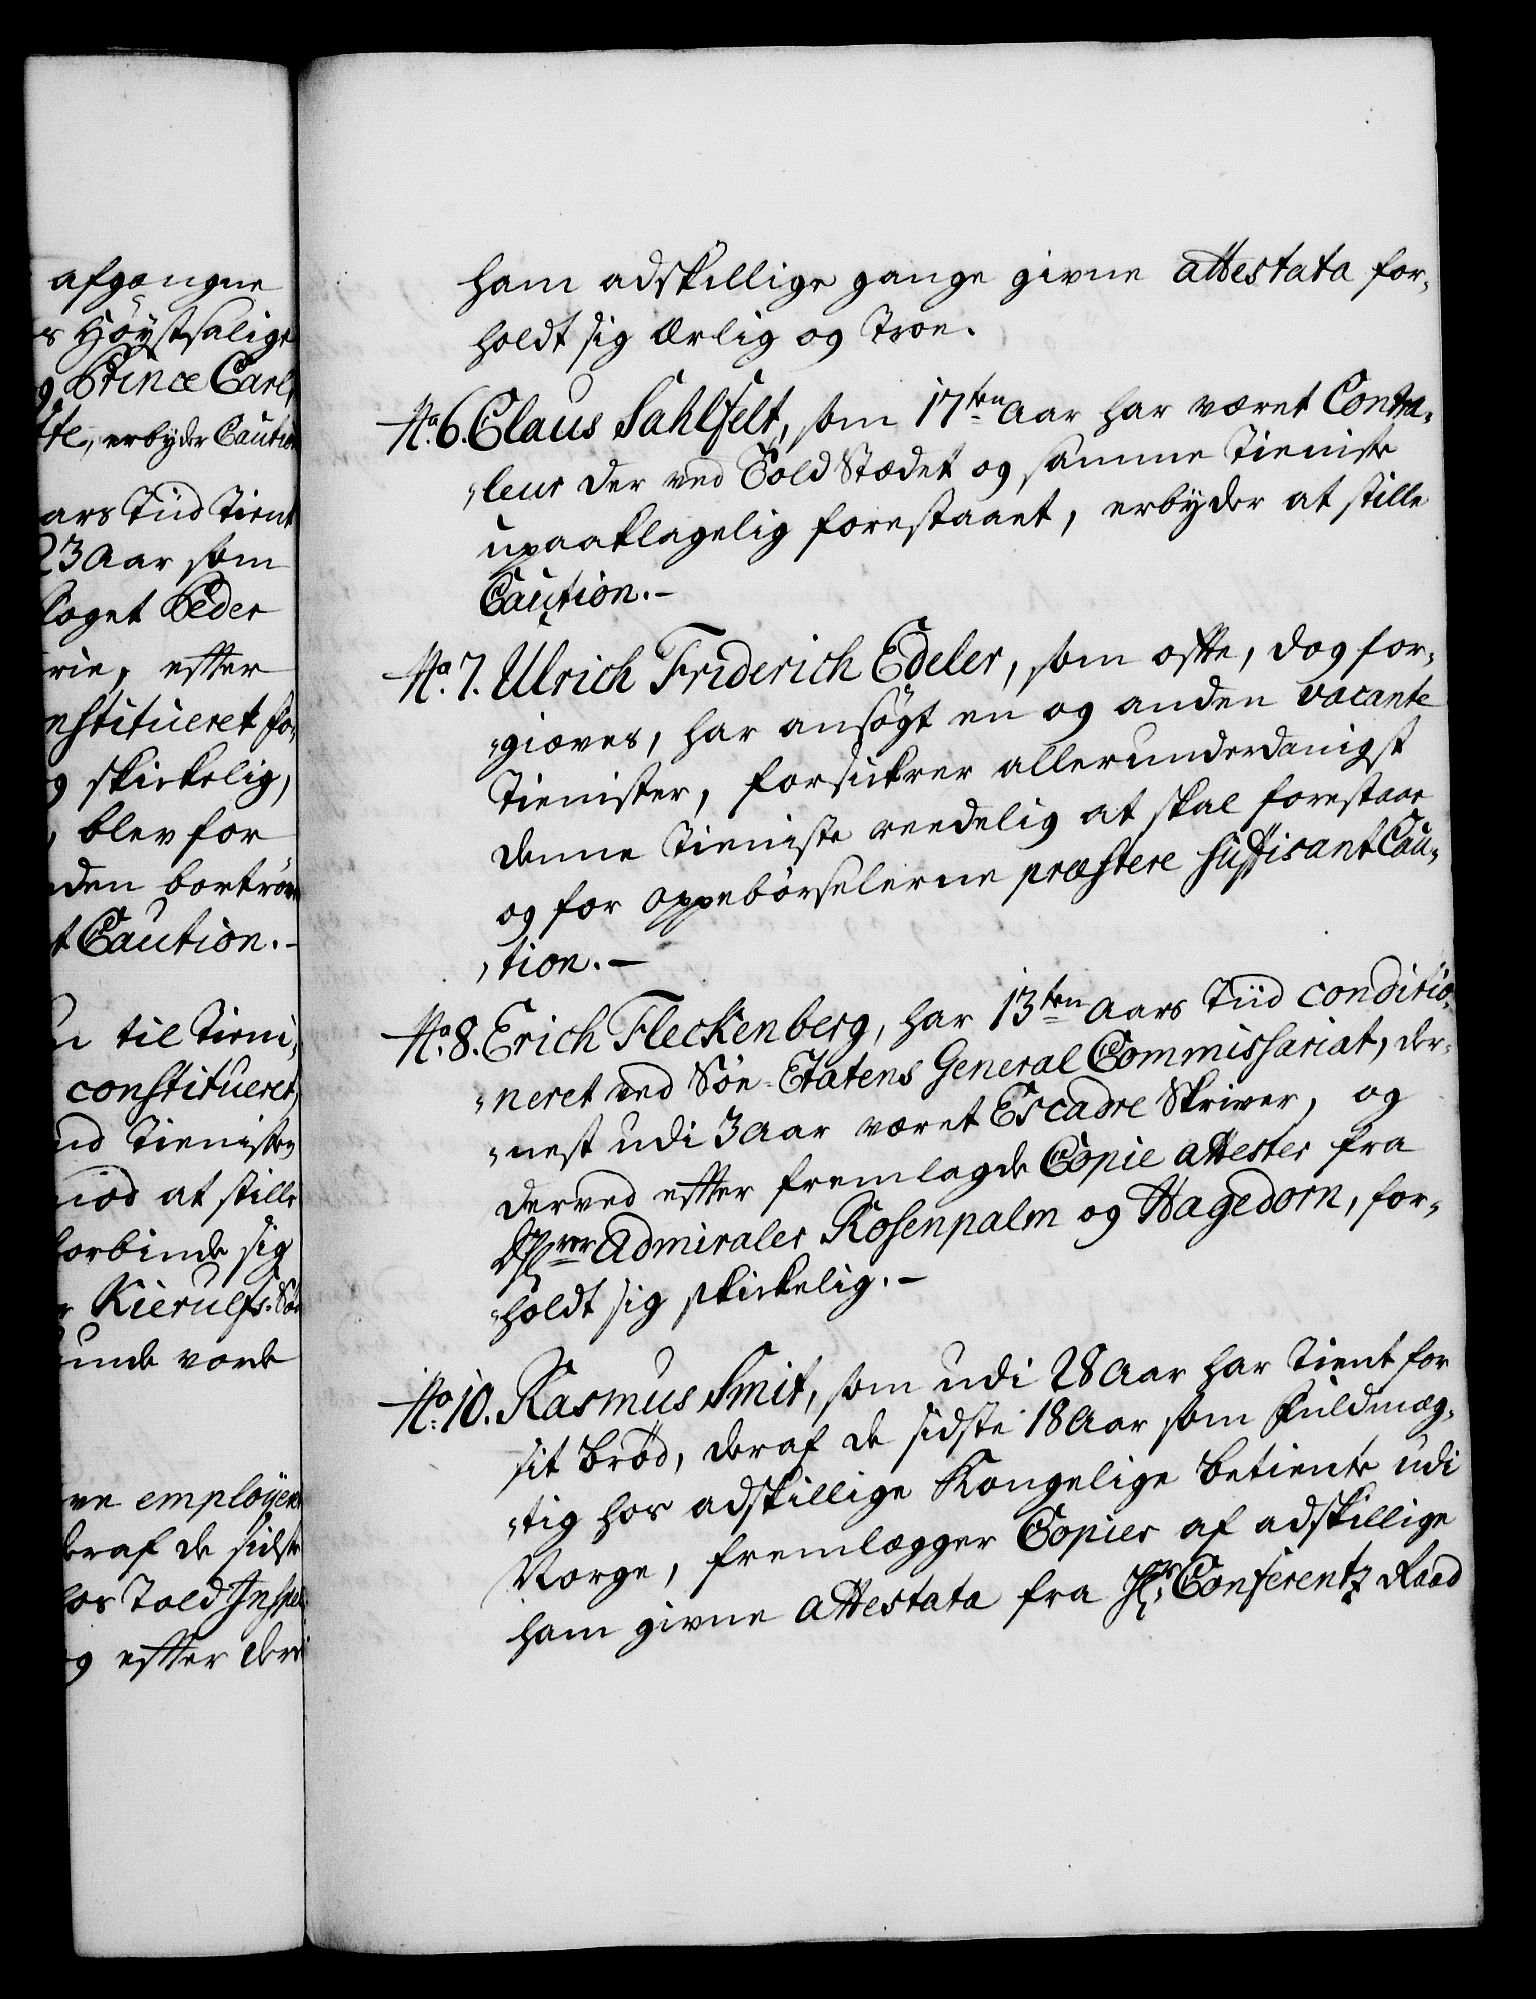 afgangne
s Høystsalige
g Prince Carls
tte, erbyder Caution
aars Tiid tient
23 Aar som
taget Peder
rie, efter
nstitueret for,
g skickelig,
, blev for
den bortröm
t Caution.-
til Tieni,
constitueret,
nd Tienisten
imod at stille
forbinde sig
r Kierulfs. Søn
unde vorde
ve employeret
deraf de sidste
hos Told Inspec
g efter dend
ham adskillige gange givne attestata for-
holdt sig ærlig og troe.
No. 6. Claus Sahlfelt, som 17ten Aar har været Contra-
"leur der ved Told Stædet og samme Tieniste
upaaklagelig forestaaet, erbyder at stille
Caution.-
No. 7. Ulrich Friderich Edeler, som offte, dog for-
"giæves, har ansøgt en og anden vacante
Tienister, forsickrer allerunderdanigst
denne Tieniste reedelig at skal forestaae
og for oppebørselerne præstere suffisant Cau-
"tion.-
No. 8. Erich Fleckenberg, har 13ten Aars Tiid conditio-
"neret ved Søe-Etatens General Commissariat, der-
"nest udi 3 Aar været Escadre Skriver, og
derved efter fremlagde Copie attester fra
Hrr Admiraler Rosenpalm og Hagedorn, for-
"holdt sig skickelig.-
No. 10. Rasmus Smit, som udi 28 Aar har tient for
sit brød, deraf de sidste 18 Aar som Fuldmæg-
"tig hos adskillige Kongelige betiente udi
Norge, fremlægger Copier af adskillige
ham givne attestata fra Hr. Conferentz Raad